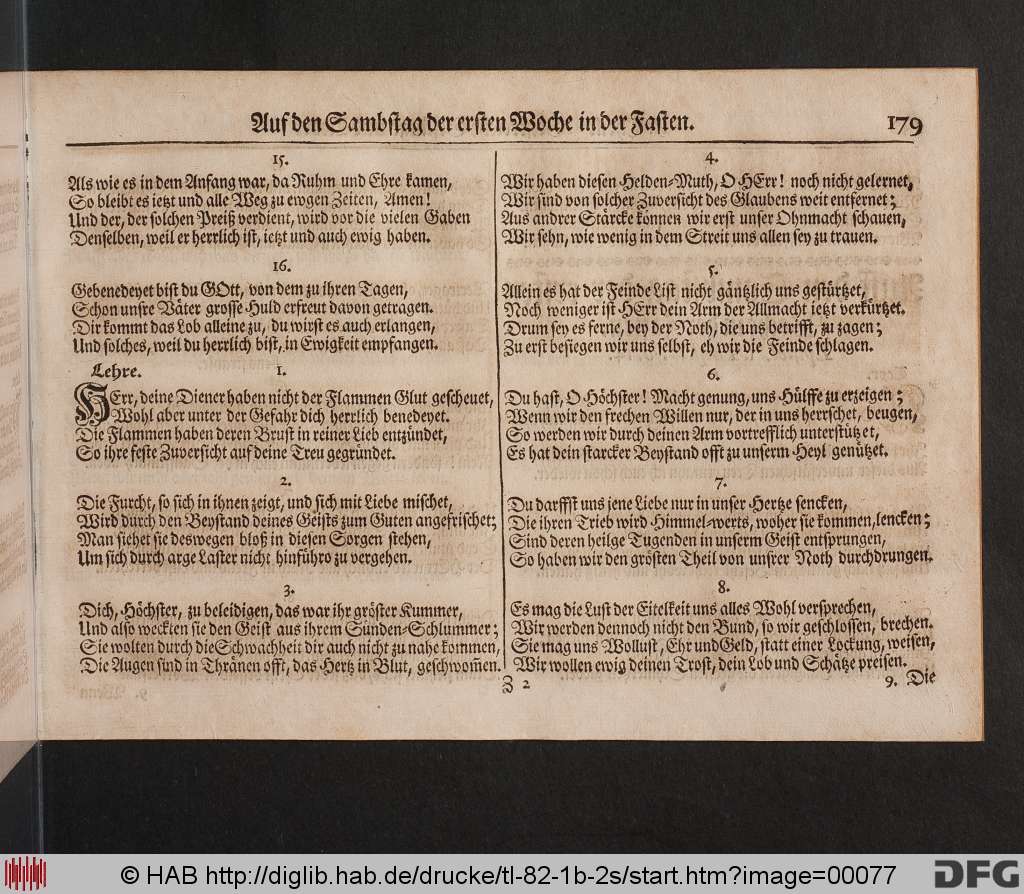 Auf den Sambstag der ersten Woche in der Fasten. 179
15.
Als wie es in dem Anfang war, da Ruhm und Ehre kamen,
So bleibt es ietzt und alle Weg zu ewgen Zeiten, Amen!
Und der, der solchen Preiß verdient, wird vor die vielen Gaben
Denselben, weil er herrlich ist, ietzt und auch ewig haben.
16.
Gebenedeyet bist du GOtt, von dem zu ihren Tagen,
Schon unsre Väter grosse Huld erfreut davon getragen.
Dir kommt das Lob alleine zu, du wirst es auch erlangen,
Und solches, weil du herrlich bist, in Ewigkeit empfangen.
Lehre. 1.
HErr, deine Diener haben nicht der Flammen Glut gescheuet,
Wohl aber unter der Gefahr dich herrlich benedeyet.
Die Flammen haben deren Brust in reiner Lieb entzündet,
So ihre feste Zuversicht auf deine Treu gegründet.
2.
Die Furcht, so sich in ihnen zeigt, und sich mit Liebe mischet,
Wird durch den Beystand deines Geists zum Guten angefrischet;
Man siehet sie deswegen bloß in diesen Sorgen stehen,
Um sich durch arge Laster nicht hinführo zu vergehen.
3.
Dich, Höchster, zu beleidigen, das war ihr gröster Kummer,
Und also weckten sie den Geist aus ihrem Sünden-Schlummer;
Sie wolten durch die Schwachheit dir auch nicht zu nahe kommen,
Die Augen sind in Thränen offt, das Hertz in Blut, geschwom̄en.
4.
Wir haben diesen Helden-Muth, O HErr! noch nicht gelernet,
Wir sind von solcher Zuversicht des Glaubens weit entfernet;
Aus andrer Stärcke können wir erst unser Ohnmacht schauen,
Wir sehn, wie wenig in dem Streit uns allen sey zu trauen.
5.
Allein es hat der Feinde List nicht gäntzlich uns gestürtzet,
Noch weniger ist HErr dein Arm der Allmacht ietzt verkürtzet.
Drum sey es ferne, bey der Noth, die uns betrifft, zu zagen;
Zu erst besiegen wir uns selbst, eh wir die Feinde schlagen.
6.
Du hast, O Höchster! Macht genung, uns Hülffe zu erzeigen;
Wenn wir den frechen Willen nur, der in uns herrschet, beugen,
So werden wir durch deinen Arm vortrefflich unterstützet,
Es hat dein starcker Beystand offt zu unserm Heyl genützet.
7.
Du darffst uns jene Liebe nur in unser Hertze sencken,
Die ihren Trieb wird Himmel-werts, woher sie kommen, lencken;
Sind deren heilge Tugenden in unserm Geist entsprungen,
So haben wir den grösten Theil von unsrer Noth durchdrungen.
8.
Es mag die Lust der Eitelkeit uns alles Wohl versprechen,
Wir werden dennoch nicht den Bund, so wir geschlossen, brechen.
Sie mag uns Wollust, Ehr und Geld, statt einer Lockung, weisen,
Wir wollen ewig deinen Trost, dein Lob und Schätze preisen.
Z 2 9. Die
© HAB http://diglib.hab.de/drucke/tl-82-1b-2s/start.htm?image=00077
DFG